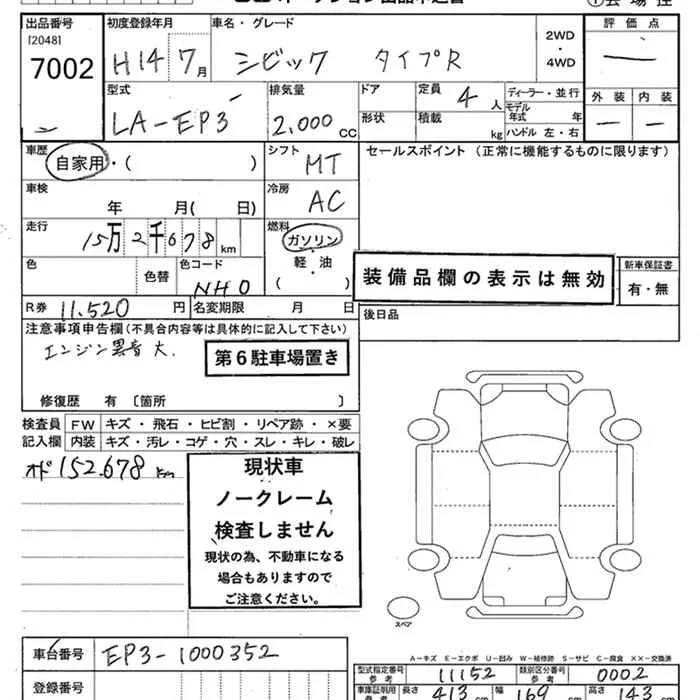 出品番号 初度登録年月 車名・グレード 評価点
[2048] 7002 H14 7月 シビック タイプR 2WD・4WD
型式 排気量 ドア 定員 ディーラー・並行 外装 内装
LA-EP3 2,000 CC 形状 4人 積載 kg モデル年式 年 ハンドル 左・右
車歴 自家用・( ) シフト MT セールスポイント(正常に機能するものに限ります)
車検 年 月( 日) 冷房 AC
走行 15万2千678 km 燃料 ガソリン・軽油・( )
色 色替 色コード NH0 装備品欄の表示は無効 新車保証書 有・無
R券 11,520円 名変期限 月 日 後日品
注意事項申告欄(不具合内容等は具体的に記入して下さい)
エンジン異音 大.
第6駐車場置き
修復歴 有 〔箇所 〕
検査員 FW キズ・飛石・ヒビ割・リペア跡・×要
記入欄 内装 キズ・汚レ・コゲ・穴・スレ・キレ・破レ
オド152.678 km
現状車
ノークレーム
検査しません
現状の為、不動車になる
場合もありますので
ご注意ください。
スペア
車台番号 EP3-1000352
A-キズ E-エクボ U-凹み W-補修跡 S-サビ C-腐食 ××-交換済
型式指定番号 参考 11152 類別区分番号 参考 0002
登録番号 車庫証明用 参考 長さ 413cm 幅 169cm 高さ 143cm